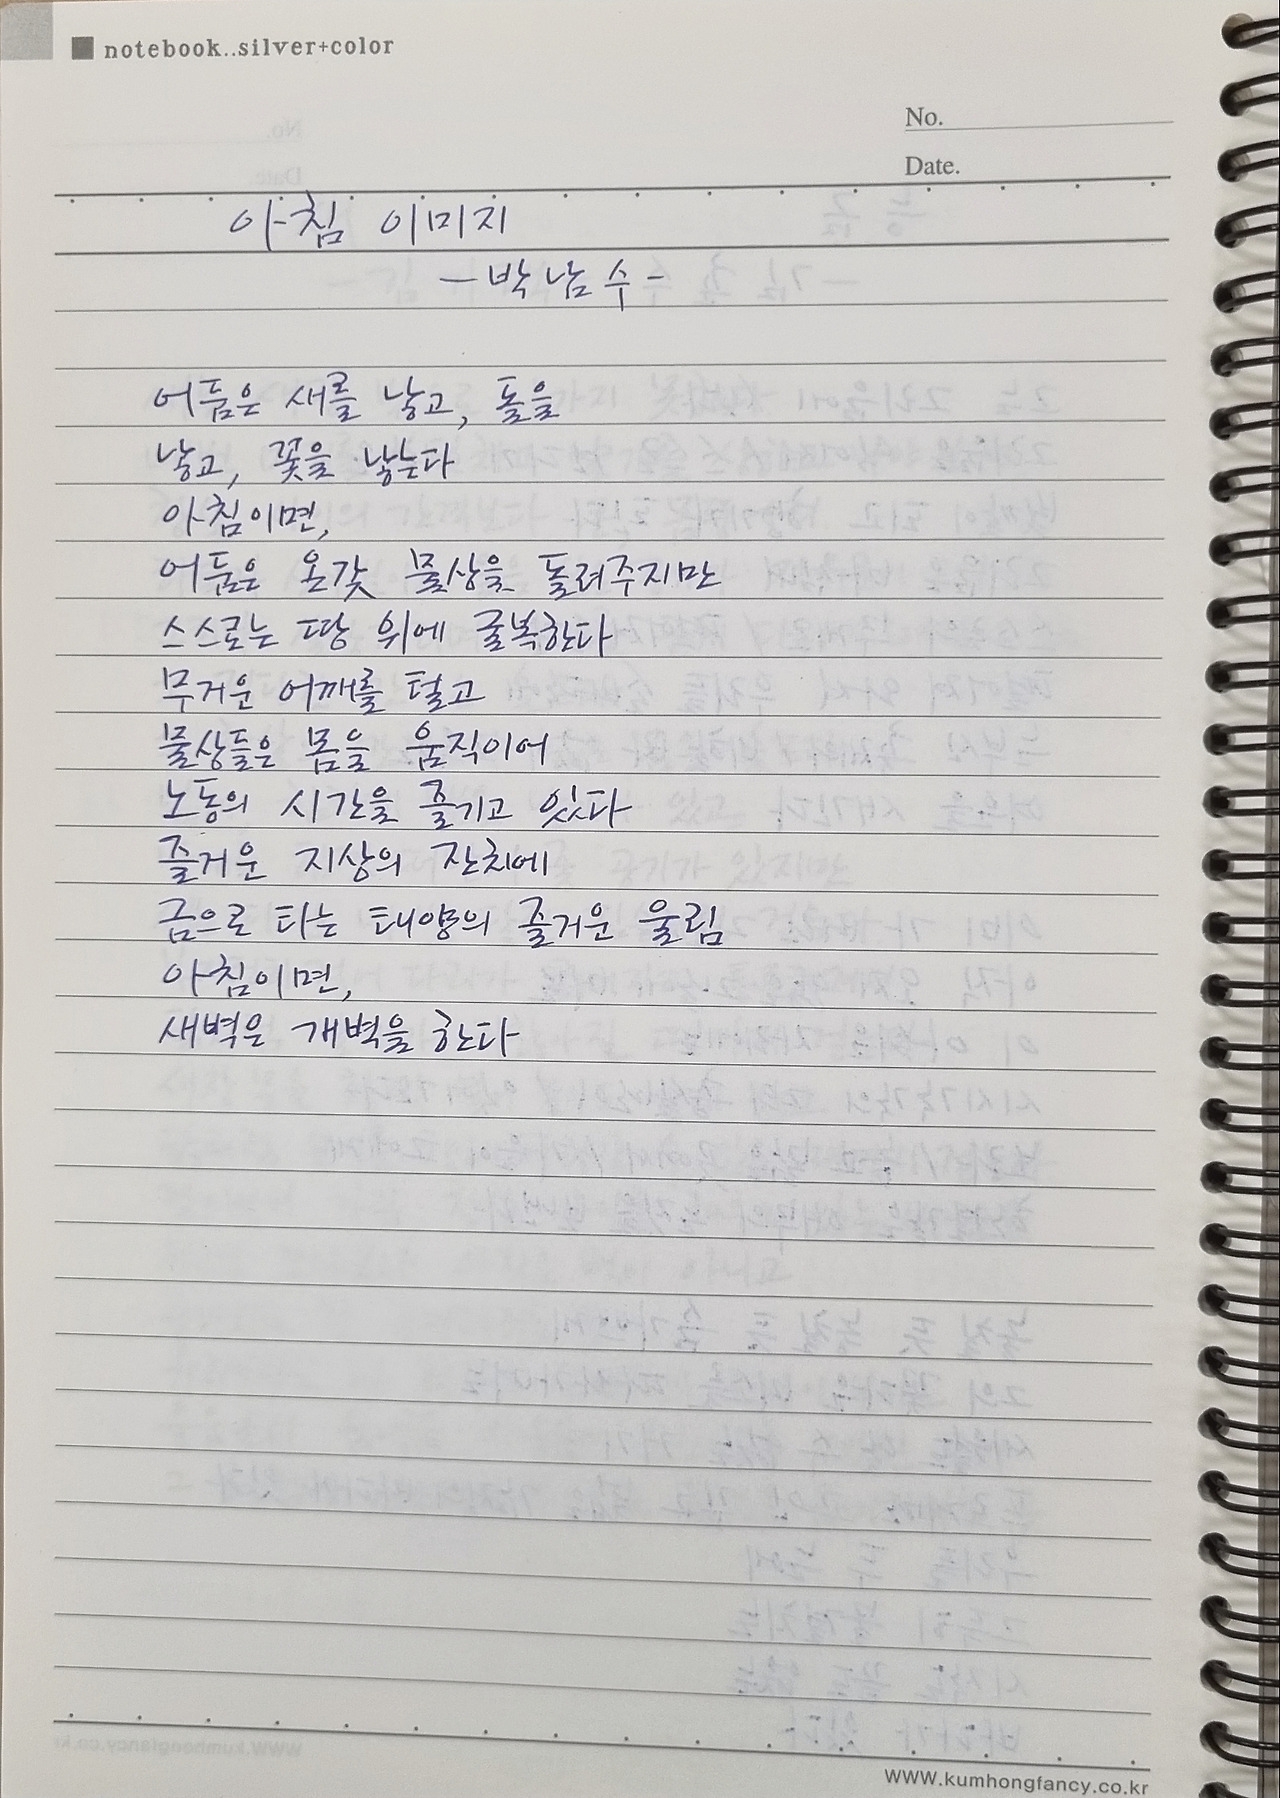 notebook..silver+color
No.
Date.
아침 이미지
- 박남수 -
어둠은 새를 낳고, 돌을
낳고, 꽃을 낳는다
아침이면,
어둠은 온갖 물상을 돌려주지만
스스로는 땅 위에 굴복한다
무거운 어깨를 털고
물상들은 몸을 움직이어
노동의 시간을 즐기고 있다
즐거운 지상의 잔치에
금으로 타는 태양의 즐거운 울림
아침이면,
새벽은 개벽을 한다
www.kumhongfancy.co.kr